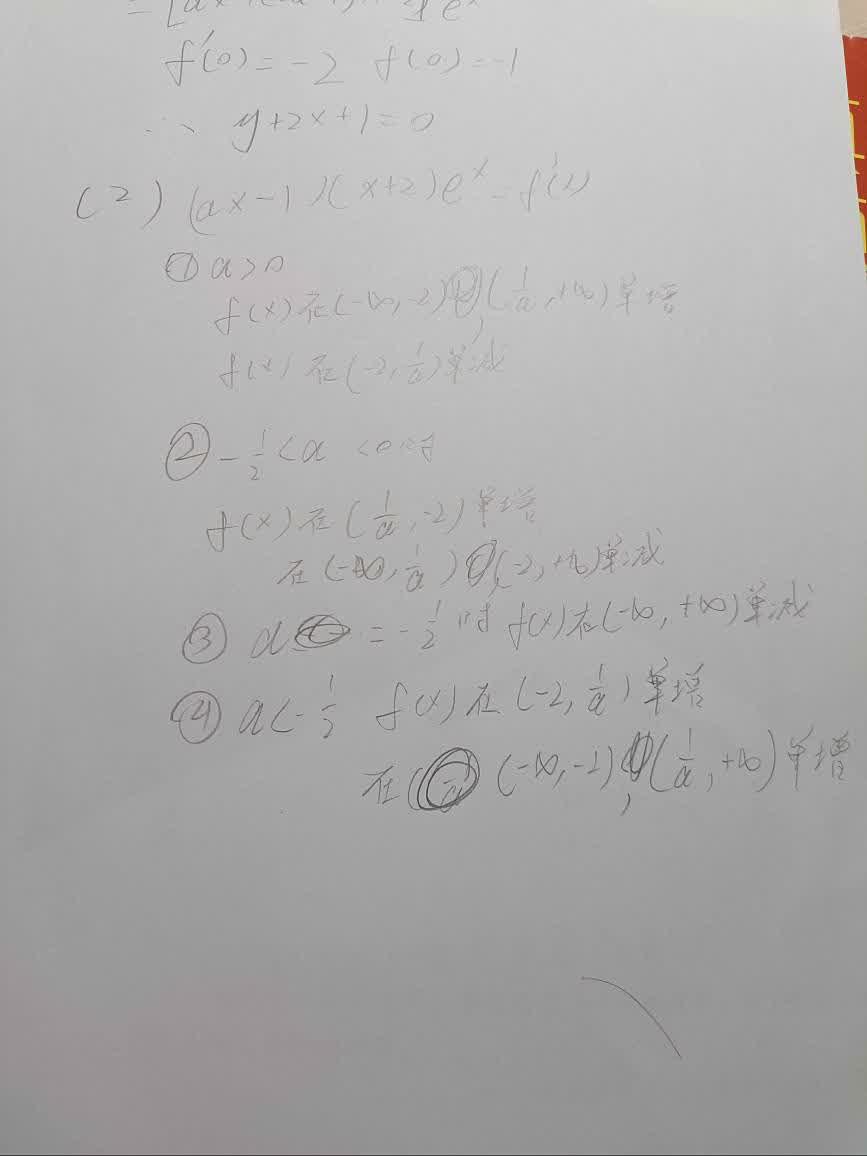 f'(0)=-2 f(0)=-1
∴ y+2x+1=0
(2) (ax-1)(x+2)e^x=f'(x)
① a>0
f(x)在(-∞,-2),(1/a,+∞)单增
f(x)在(-2,1/a)单减
② -1/2<a<0时
f(x)在(1/a,-2)单增
在(-∞,1/a),(-2,+∞)单减
③ a=-1/2时 f(x)在(-∞,+∞)单减
④ a<-1/2 f(x)在(-2,1/a)单增
在(-∞,-2),(1/a,+∞)单增